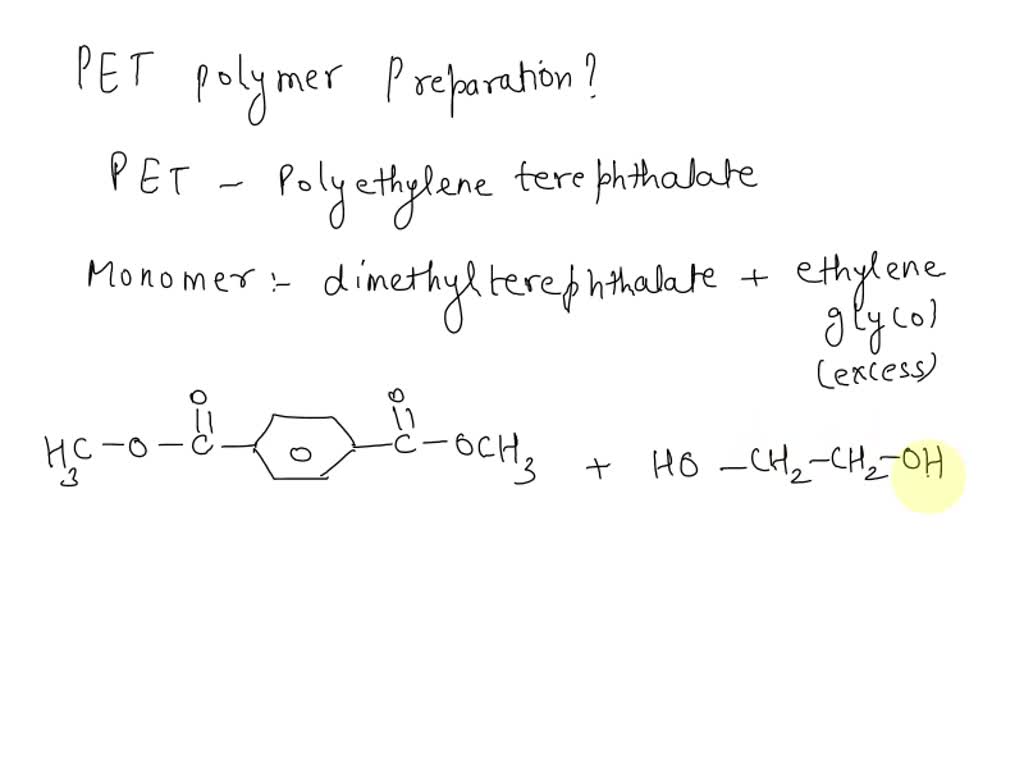 PET polymer Preparation?
PET - Polyethylene terephthalate
Monomer :- dimethylterephthalate + ethylene
glycol
(excess)
O O
H3C-O-C C-OCH3 + HO-CH2-CH2-OH
O